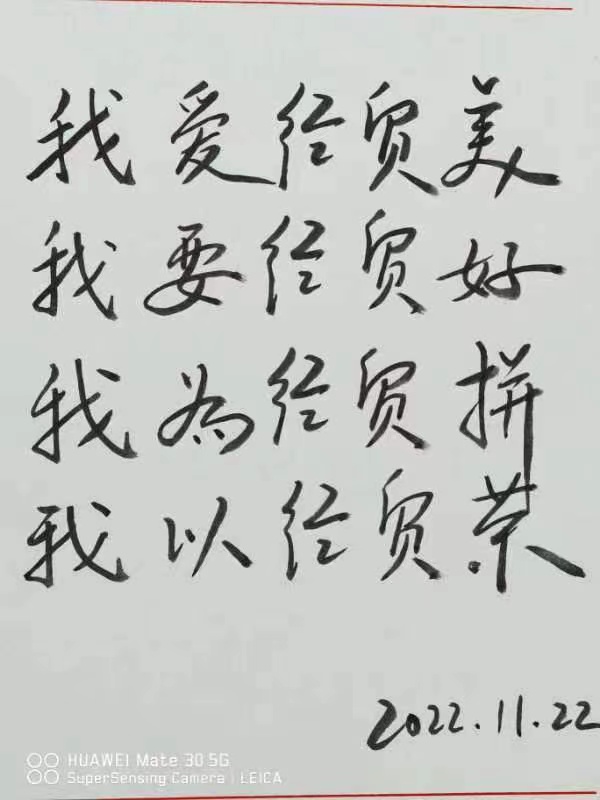 我爱经贸美
我要经贸好
我为经贸拼
我以经贸荣
2022.11.22
HUAWEI Mate 30 5G
SuperSensing Camera | LEICA